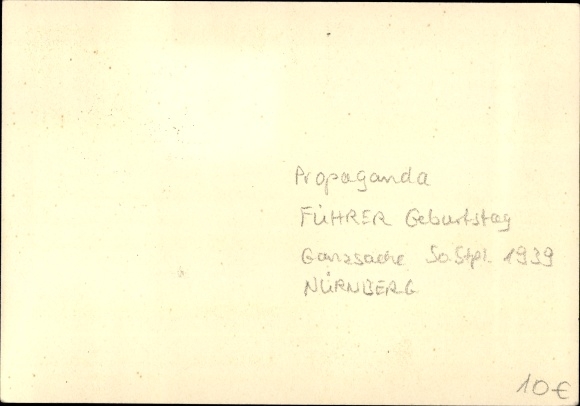 Propaganda
FÜHRER Geburtstag
Ganzsache So.Stpl. 1939
NÜRNBERG
10€